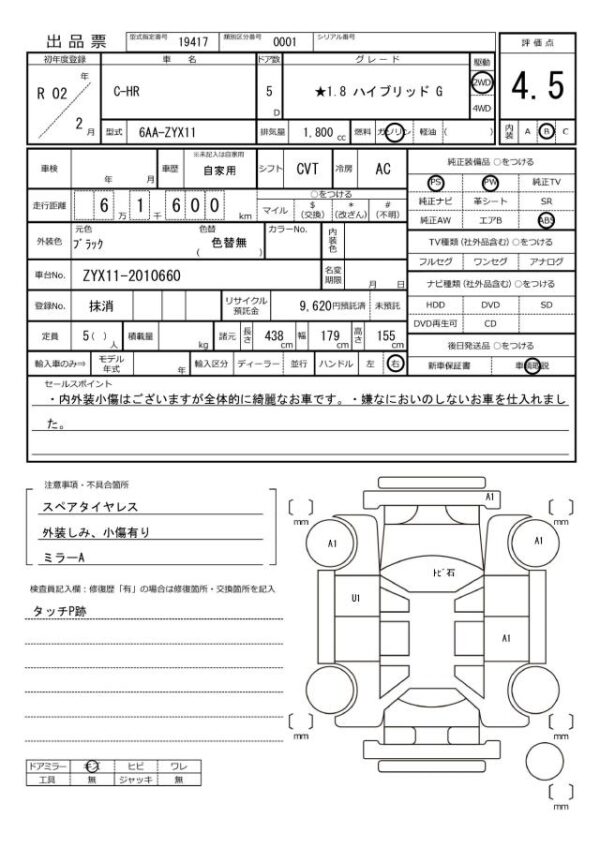 出品票 型式指定番号 19417 類別区分番号 0001 シリアル番号 評価点
初年度登録 車名 ドア数 グレード 駆動
R 02 年 C-HR 5 D ★1.8 ハイブリッド G 2WD 4.5
2 月 4WD
型式 6AA-ZYX11 排気量 1,800 cc 燃料 ガソリン 軽油 ( ) 内装 A B C
車検 年 月 車歴 ※未記入は自家用 自家用 シフト CVT 冷房 AC 純正装備品 ○をつける
PS PW 純正TV
走行距離 6 万 1 千 6 0 0 km ○をつける
マイル $ (交換) * (改ざん) # (不明) 純正ナビ 革シート SR
純正AW エアB ABS
外装色 元色 ブラック 色替 色替無 ( ) カラーNo. 内装色 TV種類 (社外品含む) ○をつける
フルセグ ワンセグ アナログ
車台No. ZYX11-2010660 名変期限 月 日 ナビ種類 (社外品含む) ○をつける
登録No. 抹消 リサイクル預託金 9,620円預託済 未預託 HDD DVD SD
DVD再生可 CD
定員 5( ) 人 積載量 kg 諸元 長さ 438 cm 幅 179 cm 高さ 155 cm 後日発送品 ○をつける
輸入車のみ⇒ モデル年式 年 輸入区分 ディーラー 並行 ハンドル 左 右 新車保証書 車輌取説
セールスポイント
・内外装小傷はございますが全体的に綺麗なお車です。・嫌なにおいのしないお車を仕入れまし
た。
注意事項・不具合箇所
スペアタイヤレス
外装しみ、小傷有り
ミラーA
検査員記入欄：修復歴「有」の場合は修復箇所・交換箇所を記入
タッチP跡
A1
mm mm
A1 A1
トビ石
U1
A1
mm mm
mm
ドアミラー キズ ヒビ ワレ
工具 無 ジャッキ 無